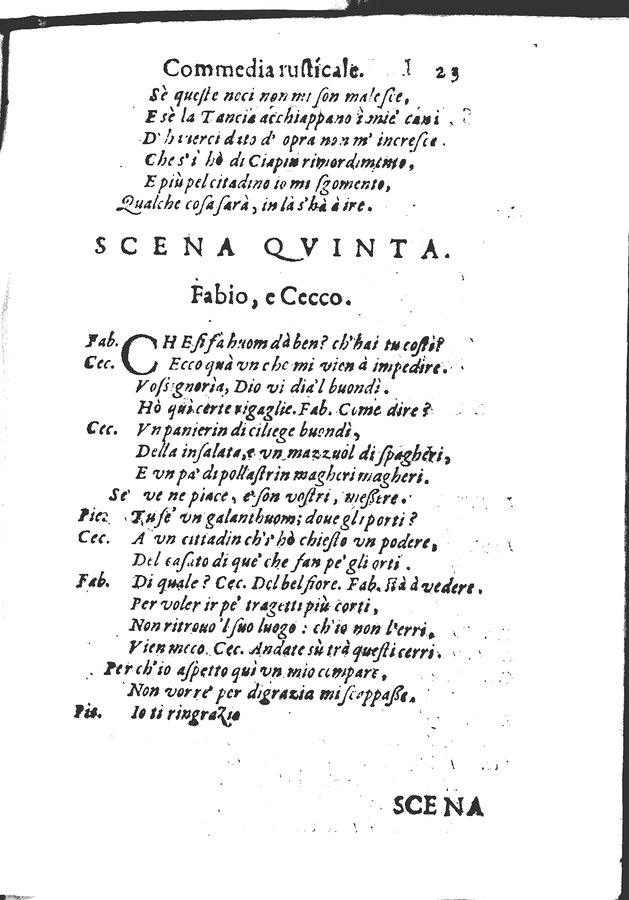 Commedia rusticale. 23
Sè queste noci non mi son malesce,
E sè la Tancia acchiappano i mie' cani
D'haverci dato d'opra non m'incresce.
Che s'i hò di Ciapin rimordimento,
E più pel citadino io mi sgomento,
Qualche cosa sarà, in là s'hà à ire.
SCENA QVINTA.
Fabio, e Cecco.
Fab. CHE si fà huom dà ben? ch'hai tu costì?
Cec. Ecco quà vn che mi vien à impedire.
Vossignoria, Dio vi dia'l buondì.
Hò quì certe rigaglie. Fab. Come dire?
Cec. Vn panierin di ciliege buondì,
Della insalata, e vn mazzuòl di spaghéri,
E vn pa' di pollastrin magheri magheri.
Se ve ne piace, e' son vostri, messere.
Pie. Tu se' vn galanthuom; doue gli porti?
Cec. A vn cittadin ch'i hò chiesto vn podere,
Del casato di que' che fan pe' gli orti.
Fab. Di quale? Cec. Del belfiore. Fab. stà à vedere.
Per voler ir pe' tragetti più corti,
Non ritrouo'l suo luogo: ch'io non l'erri,
Vien meco. Cec. Andate sù trà questi cerri.
Per ch'io aspetto quì vn mio compare,
Non vorre' per digrazia mi scappasse.
Pie. Io ti ringrazio
SCENA